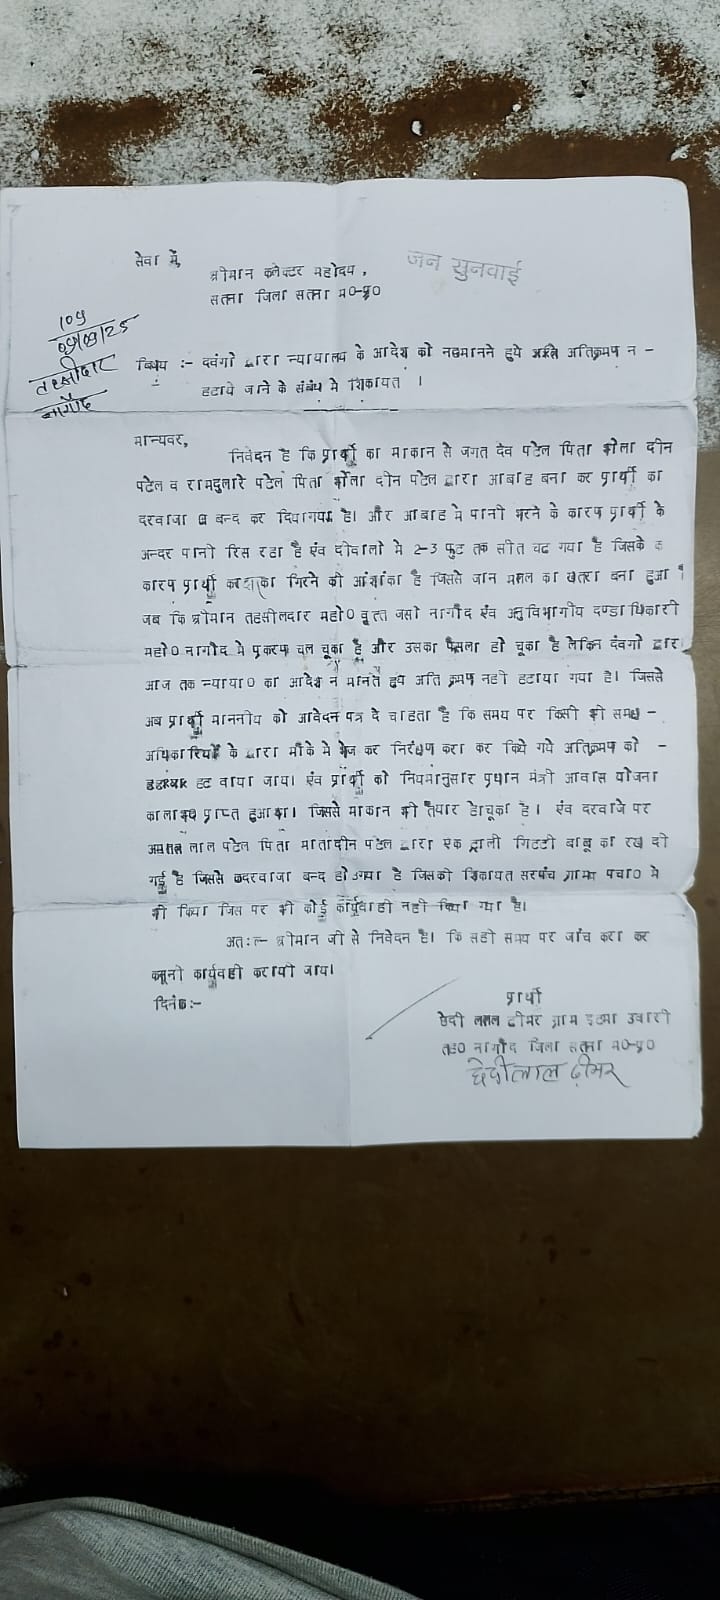 सेवा में,
श्रीमान कलेक्टर महोदय,
जन सुनवाई
सतना जिला सतना म0-प्र0
109
तहसीलदार
नागौद
विषय :- दवंगो द्वारा न्यायालय के आदेश को नहमानने हुये अतिक्रमण न -
हटाये जाने के संबंध मे शिकायत ।
मान्यवर,
निवेदन है कि प्रार्थी का माकान से जगत देव पटेल पिता भोला दीन
पटेल व रामदुलारे पटेल पिता भोला दीन पटेल द्वारा आबाह बना कर प्रार्थी का
दरवाजा बन्द कर दियागया है। और आबाह मे पानी भरने के कारण प्रार्थी के
अन्दर पानी रिस रहा है एंव दीवालो मे 2-3 फुट तक सीत चढ गया है जिसके
कारण प्रार्थी का गिरने की आंशांका है जिससे जान का खतरा बना हुआ
जब कि श्रीमान तहसीलदार महो0 वृत्त जसो नागौद एंव अनुविभागीय दण्डाधिकारी
महो0 नागौद मे प्रकरण चल चूका है और उसका फैसला हो चूका है लेकिन दंवगो द्वारा
आज तक न्याया0 का आदेश न मानते हुये अति क्रमण नही हटाया गया है। जिससे
अब प्रार्थी माननीय को आवेदन पत्र दे चाहता है कि समय पर किसी भी समक्ष -
अधिकारियों के द्वारा मौके मे भेज कर निरीक्षण करा कर किये गये अतिक्रमण को -
हट वाया जाय। एंव प्रार्थी को नियमानुसार प्रधान मंत्री आवास योजना
का लाभ प्राप्त हुआ था। जिससे माकान भी तैयार होचूका है । एंव दरवाजे पर
लाल पटेल पिता मातादीन पटेल द्वारा एक ट्राली गिटटी बाबू का रख दी
गई है जिससे दरवाजा बन्द हो गया है जिसकी शिकायत सरपंच ग्राम पंचा0 मे
भी किया जिस पर भी कोई कार्यवाही नही किया गया है।
अतः- श्रीमान जी से निवेदन है। कि सही समय पर जांच करा कर
कनूनी कार्यवही करायी जाय।
दिनंक:-
प्रार्थी
छेदी लाल ढीमर ग्राम इटमा उबारी
तह0 नागौद जिला सतना म0-प्र0
छेदीलाल ढीमर